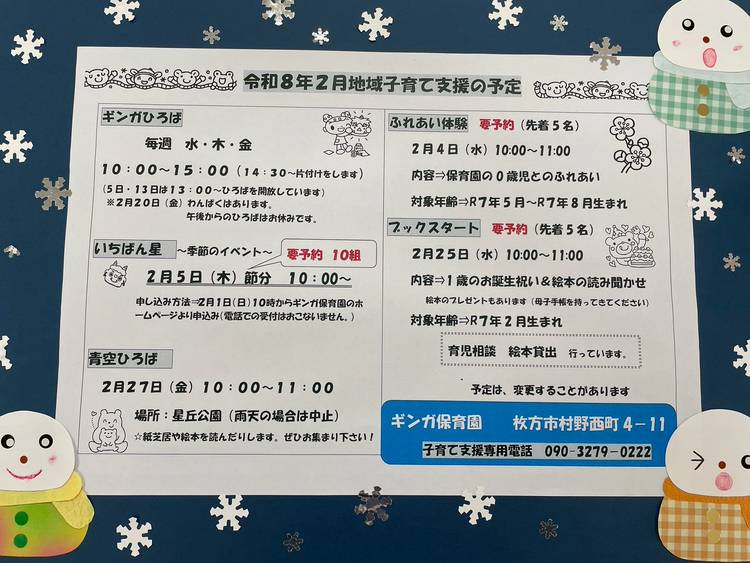 令和8年2月地域子育て支援の予定
ギンガひろば
毎週 水・木・金
10:00～15:00(14:30～片付けをします)
(5日・13日は13:00～ひろばを開放しています)
※2月20日(金)わんぱくはあります。
午後からのひろばはお休みです。
いちばん星 ～季節のイベント～
要予約 10組
2月5日(木)節分 10:00～
申し込み方法⇒2月1日(日)10時からギンガ保育園のホ
ームページより申込み(電話での受付はおこないません。)
青空ひろば
2月27日(金)10:00～11:00
場所:星丘公園(雨天の場合は中止)
☆紙芝居や絵本を読んだりします。ぜひお集まり下さい!
ふれあい体験 要予約(先着5名)
2月4日(水)10:00～11:00
内容⇒保育園の0歳児とのふれあい
対象年齢⇒R7年5月～R7年8月生まれ
ブックスタート 要予約(先着5名)
2月25日(水)10:00～11:00
内容⇒1歳のお誕生祝い&絵本の読み聞かせ
絵本のプレゼントもあります(母子手帳を持ってきてください)
対象年齢⇒R7年2月生まれ
育児相談 絵本貸出 行っています。
予定は、変更することがあります
ギンガ保育園 枚方市村野西町4-11
子育て支援専用電話 090-3279-0222